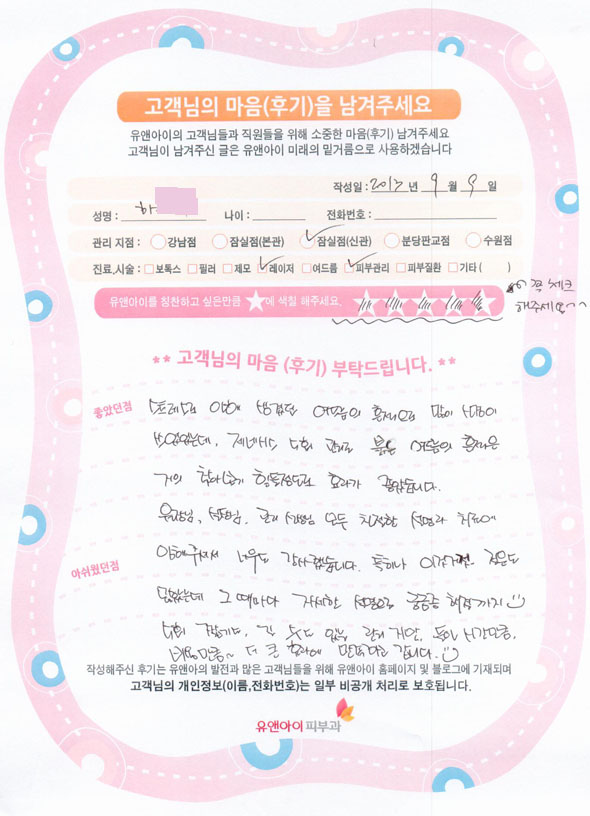 고객님의 마음(후기)을 남겨주세요
유앤아이의 고객님들과 직원들을 위해 소중한 마음(후기) 남겨주세요
고객님이 남겨주신 글은 유앤아이 미래의 밑거름으로 사용하겠습니다
작성일 : 2013 년 9 월 9 일
성명 : 하 나이 : 전화번호 :
관리 지점 : 강남점 잠실점(본관) 잠실점(신관) 분당판교점 수원점
진료,시술 : 보톡스 필러 제모 레이저 여드름 피부관리 피부질환 기타 ( )
유앤아이를 칭찬하고 싶은만큼 ★에 색칠 해주세요.
꼭 체크
해주세요~~
** 고객님의 마음 (후기) 부탁드립니다. **
좋았던점
스트레스로 인해 생겼던 여드름의 흉터으로 많이
제네시스 5회 관리로 붉은 여드름의 흉터은
거의 힘들정도로 효과가 좋았습니다.
원장님, 실장님, 관리 선생님 모두 친절한 설명과 치료에
임해주셔서 너무도 감사했습니다. 특히나 이것저것 질문도
아쉬웠던점
많았는데 그 때마다 자세한 설명으로 궁금증 해결까지
5회 시간만큼,
비용만큼~ 더 큰 효과에 만족하고 갑니다.
작성해주신 후기는 유앤아의 발전과 많은 고객님들을 위해 유앤아이 홈페이지 및 블로그에 기재되며
고객님의 개인정보(이름,전화번호)는 일부 비공개 처리로 보호됩니다.
유앤아이 피부과